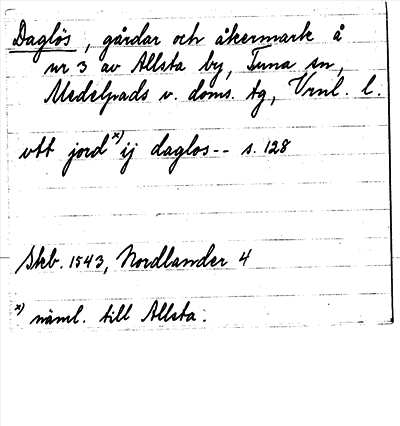 Daglös, gårdar och åkermark å
nr 3 av Allsta by, Tuna sn,
Medelpads v. doms. tg, Vrnl. l.
vtt jord x) ij daglos-- s. 128
Skb. 1543, Nordlander 4
x) näml. till Allsta.